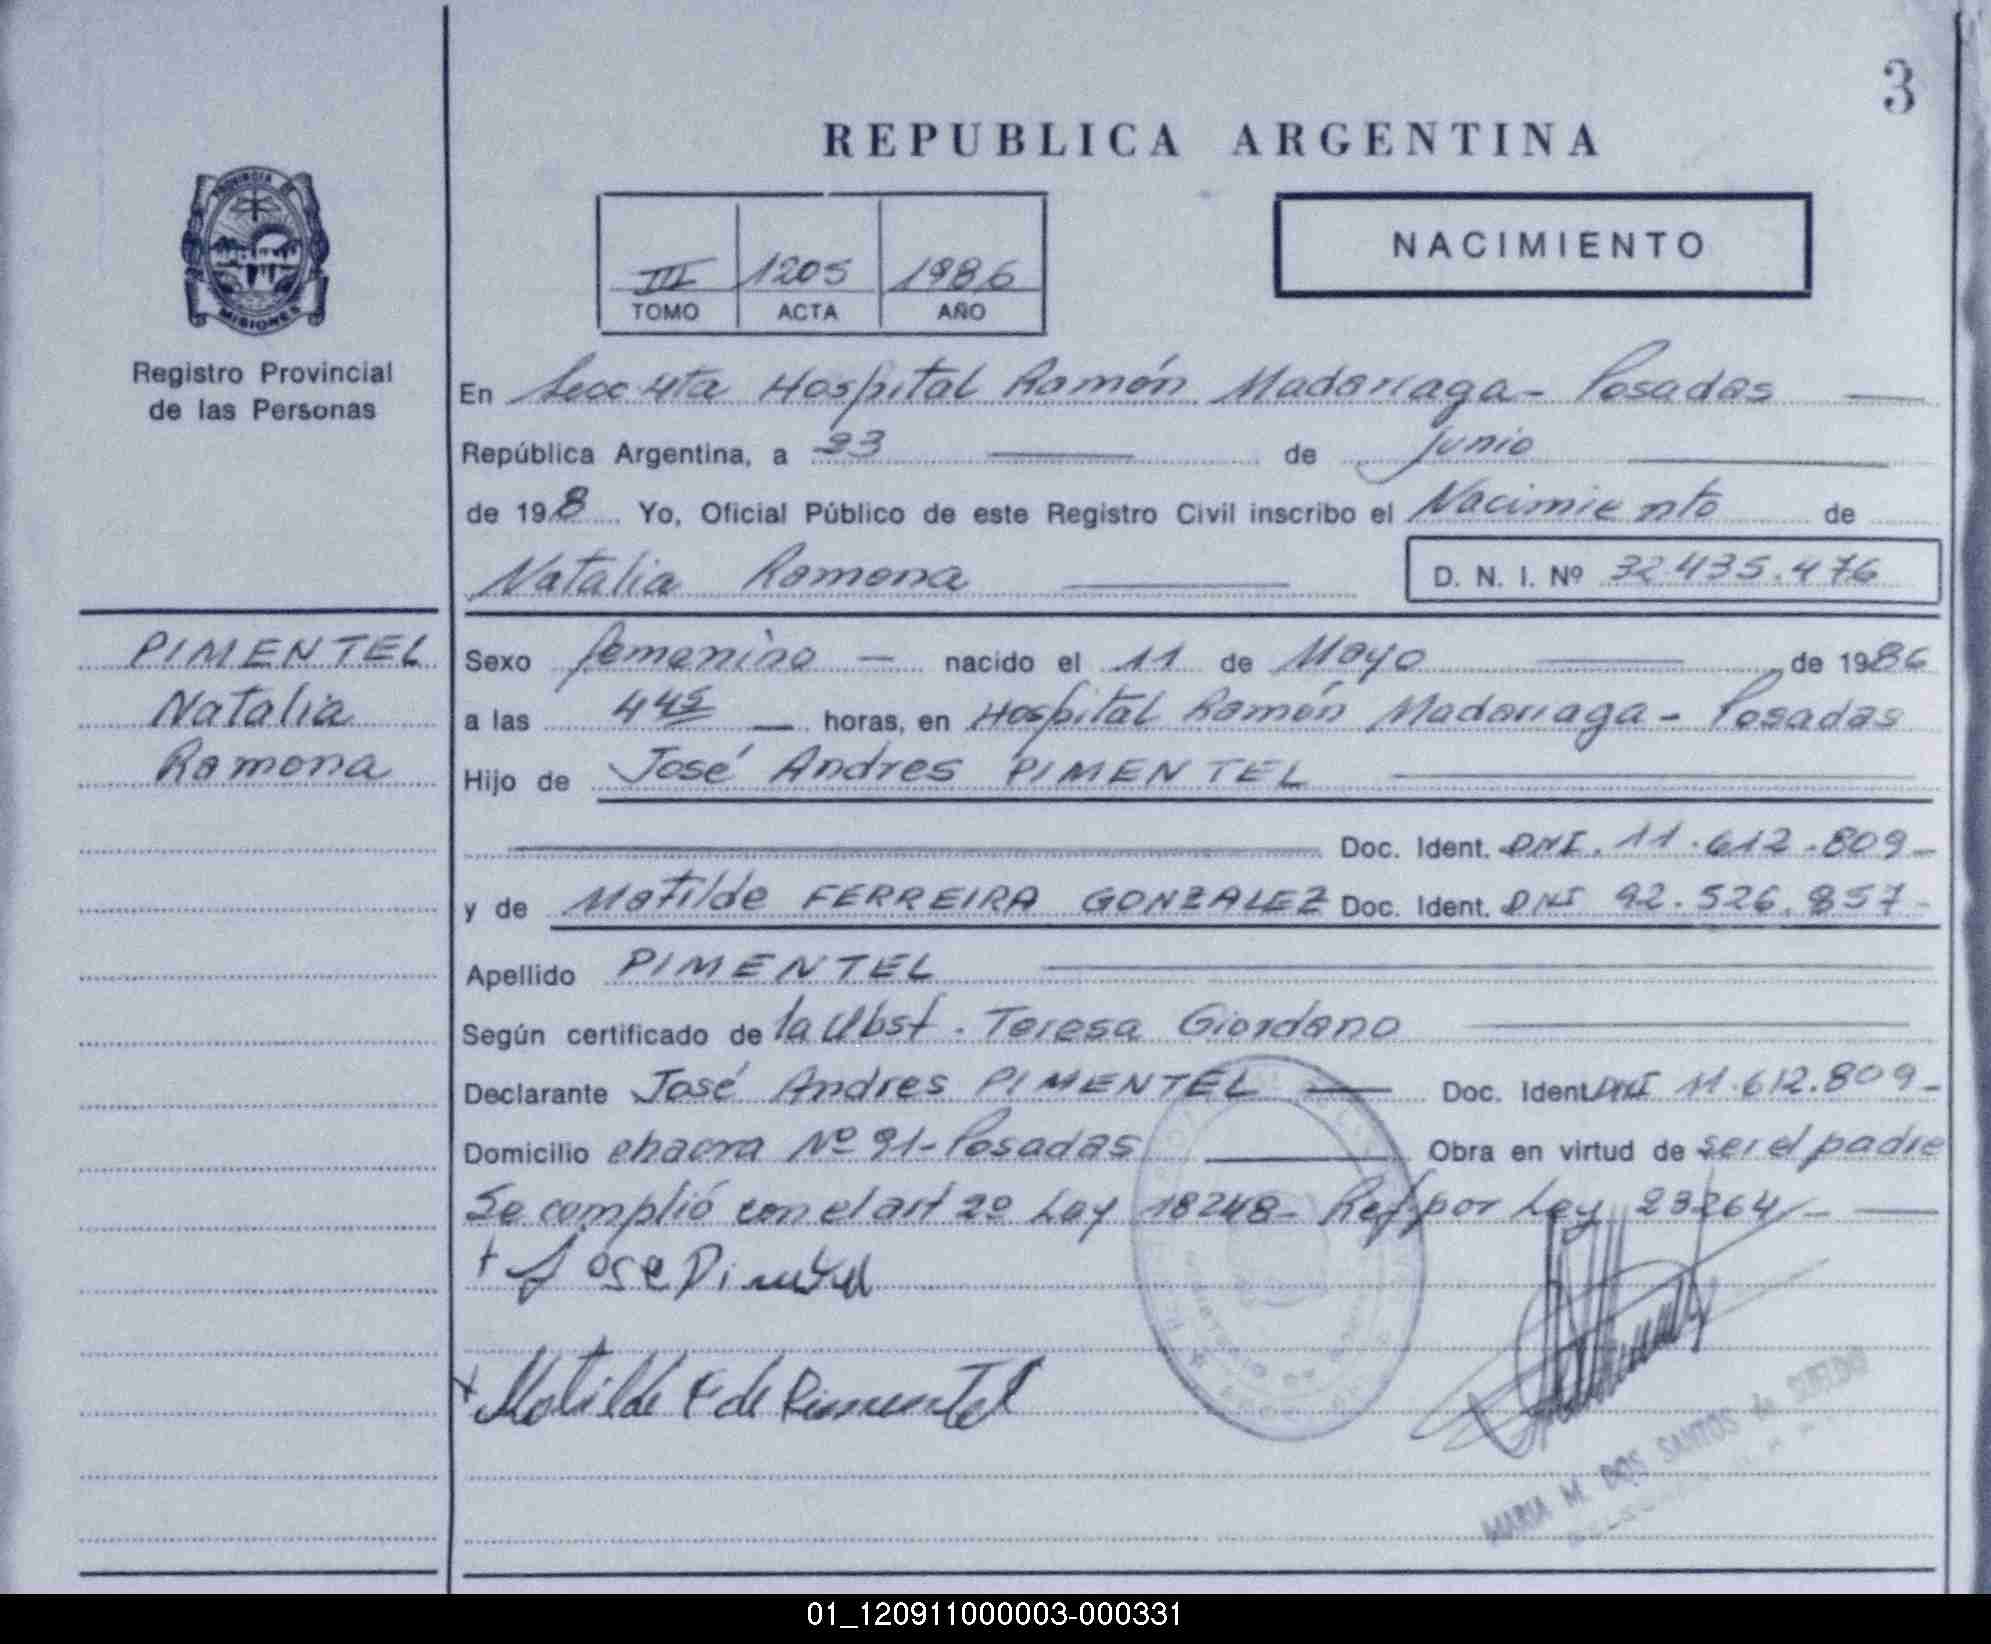 3
REPUBLICA ARGENTINA
PROVINCIA DE
MISIONES
III 1205 1986
TOMO ACTA AÑO
NACIMIENTO
Registro Provincial
de las Personas
En Secc 4ta Hospital Ramón Madariaga - Posadas
República Argentina, a 23 de junio
de 198 Yo, Oficial Público de este Registro Civil inscribo el Nacimiento de
Natalia Ramona D. N. I. Nº 32.435.476
PIMENTEL
Natalia
Ramona
Sexo femenino - nacido el 11 de Mayo de 1986
a las 445 horas, en Hospital Ramón Madariaga - Posadas
Hijo de José Andres PIMENTEL
Doc. Ident. DNI. 11.612.809-
y de Matilde FERREIRA GONZALEZ Doc. Ident. DNI 92.526.857-
Apellido PIMENTEL
Según certificado de la Obst. Teresa Giordano
Declarante José Andres PIMENTEL Doc. Ident. DNI 11.612.809-
Domicilio chacra Nº 91 - Posadas Obra en virtud de ser el padre
Se complió con el art 2º Ley 18248 - Ref. por Ley 23264 -
+ Jose Pimentel
+ Matilde F de Pimentel
MARIA M. DOS SANTOS de SUELDO
01_120911000003-000331